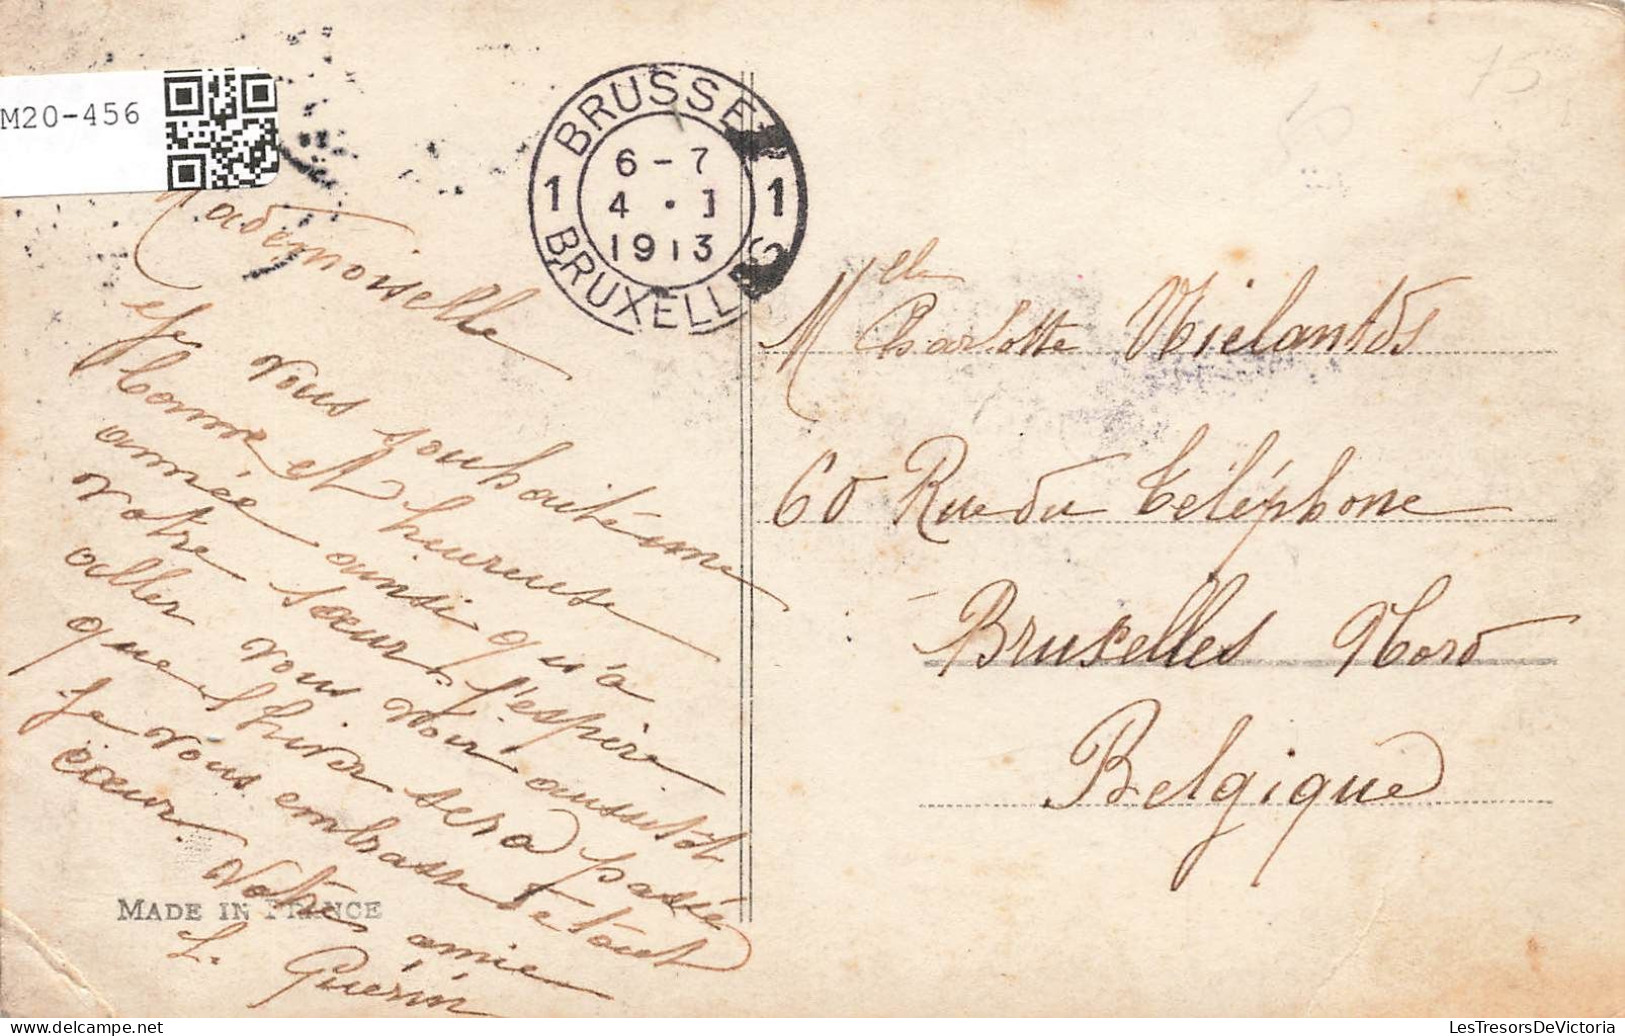 M20-456
BRUSSEL
1 6-7 1
4 · I
1913
BRUXELLES
Mademoiselle
Je vous souhaite une
bonne et heureuse
année ainsi qu'à
votre sœur, j'espère
aller vous voir aussitôt
que l'hiver sera passé
Je vous embrasse de tout
cœur. Votre amie
L. Guérin
MADE IN FRANCE
75
Melle Charlotte
60 Rue du Téléphone
Bruxelles Nord
Belgique
LesTresorsDeVictoria.com